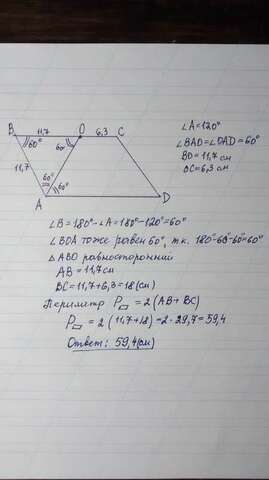 B 11,7 O 6,3 C
60° 60°
11,7
60° 60°
A D
∠A=120°
∠BAD=∠OAD=60°
BO=11,7 см
OC=6,3 см
∠B=180°-∠A=180°-120°=60°
∠BOA тоже равен 60°, т.к. 180°-60°-60°=60°
△ABO равносторонний
AB=11,7см
BC=11,7+6,3=18(см)
Периметр P▱=2(AB+BC)
P▱=2(11,7+18)=2·29,7=59,4
Ответ: 59,4(см)